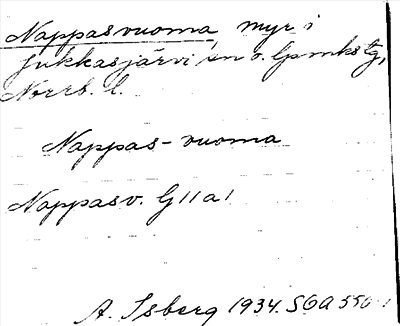 Nappasvuoma, myr i
Jukkasjärvi sn o. lpmkstg,
Norrb. l.
Nappas-vuoma
Nappasv. G11a1
A. Isberg 1934. SOA 550